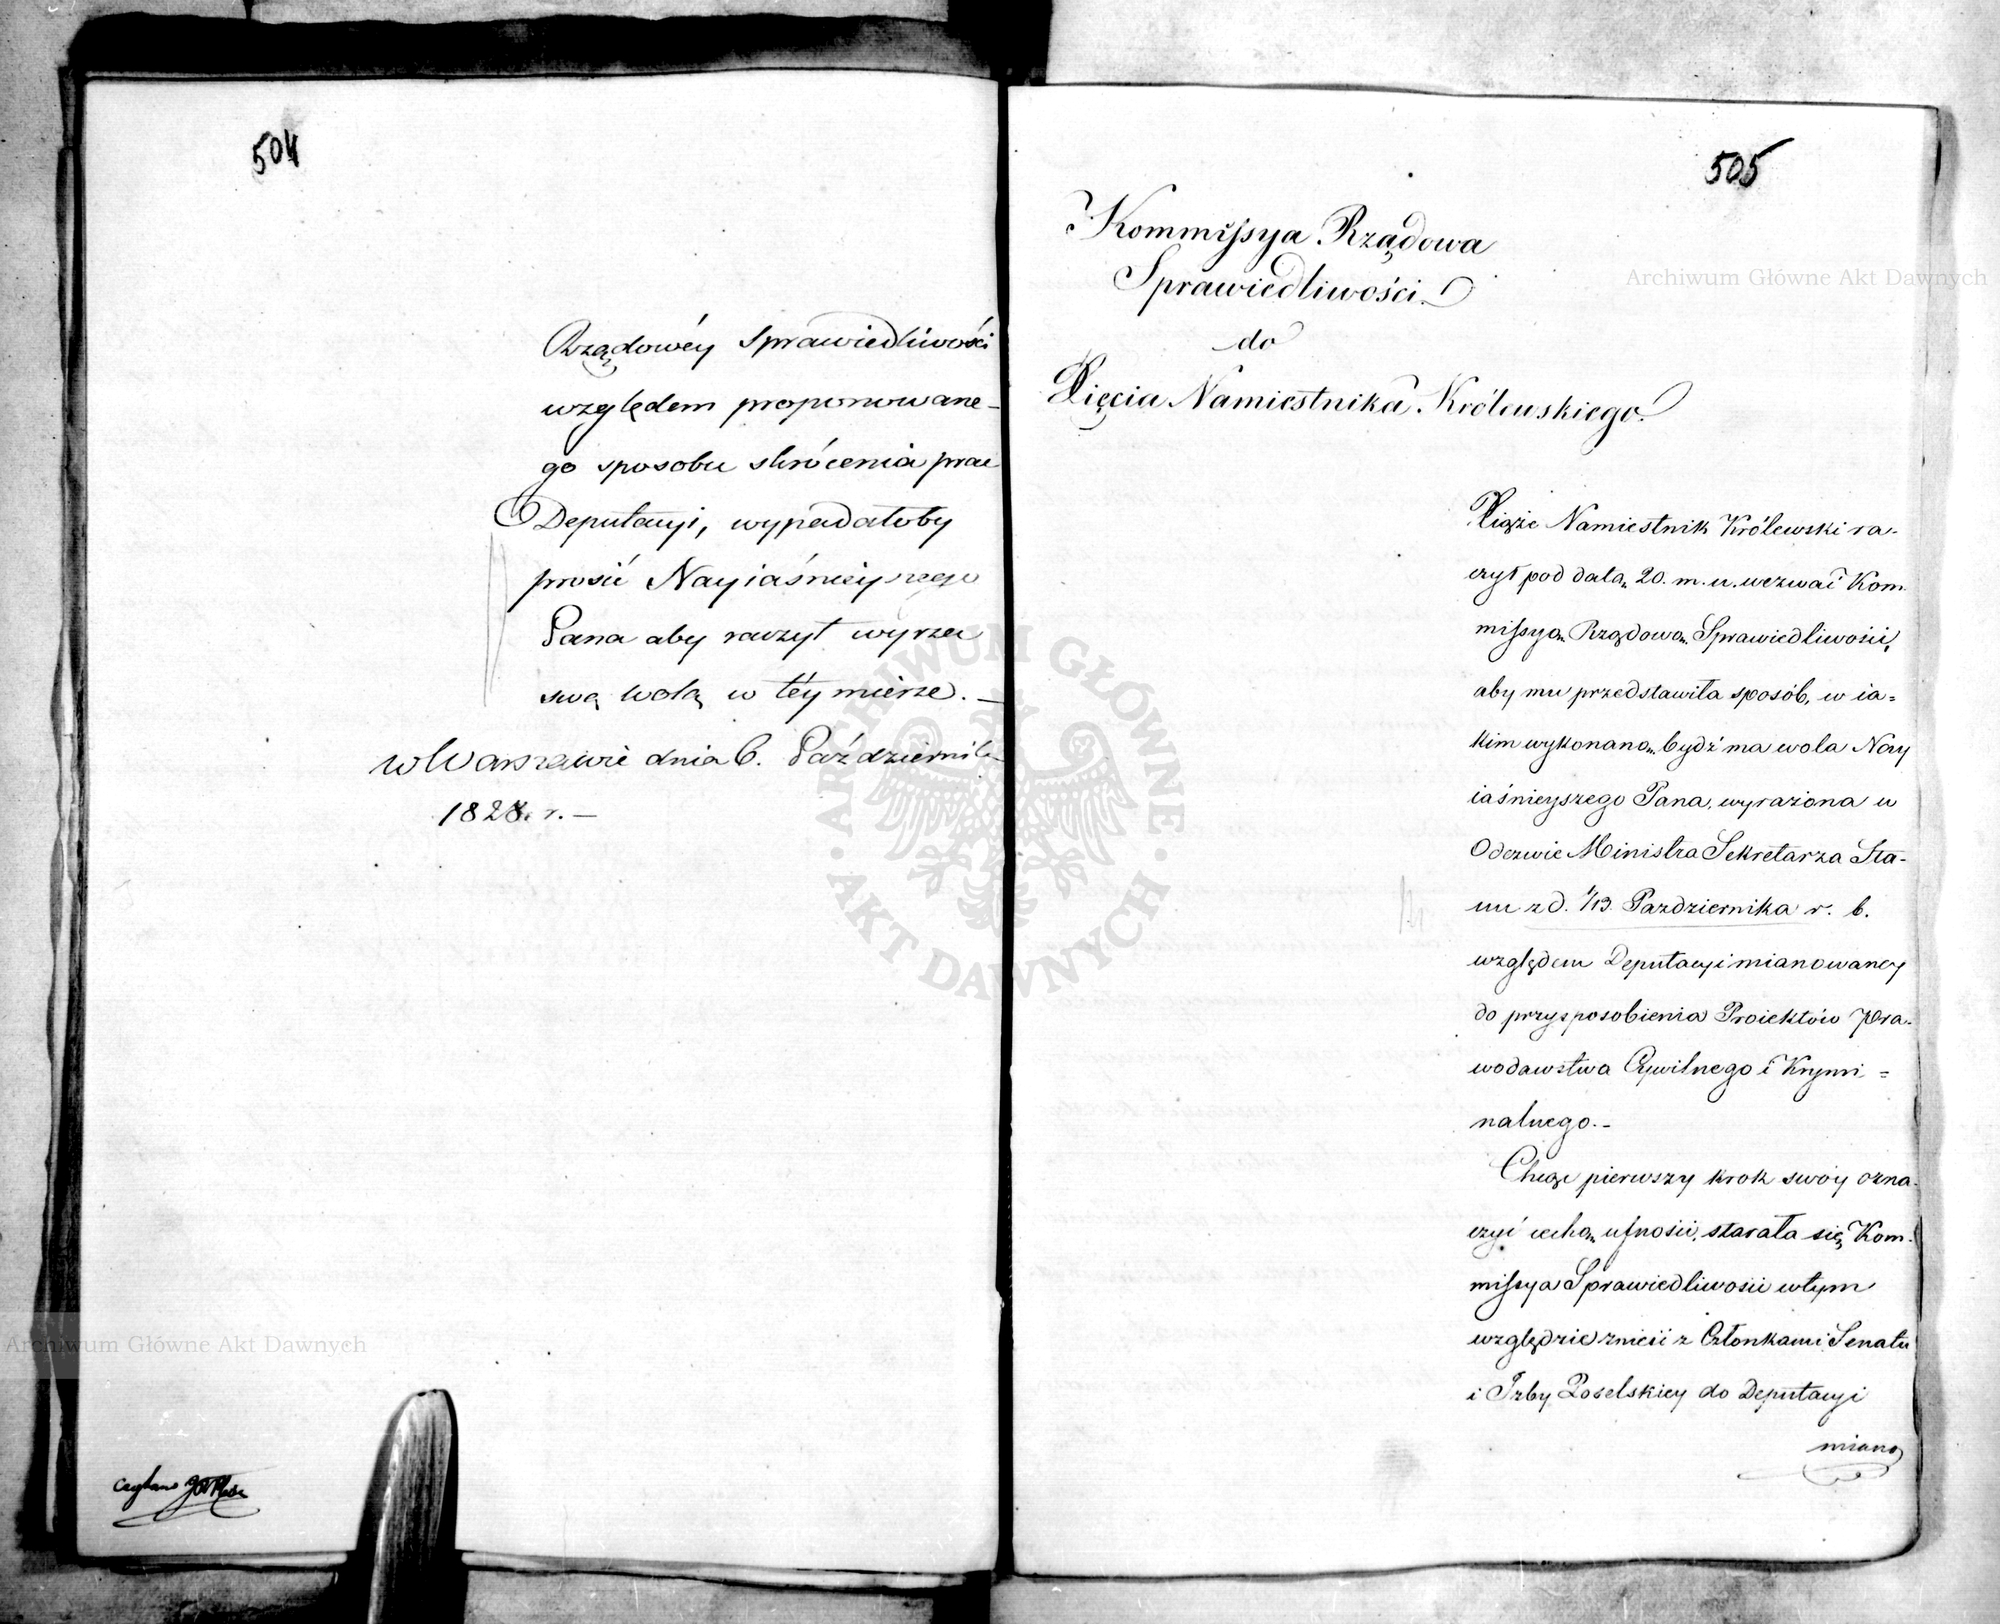 504
Rządowéy Sprawiedliwości
względem proponowane-
go sposobu skrócenia prac
Deputacyi, wypadałoby
prosić Nayiaśnieyszego
Pana aby raczył wyrzec
swą wolą w téy mierze. —
w Warszawie dnia 6. Październik
r. —
Czytano
505
Kommissya Rządowa
Sprawiedliwości
do
Xięcia Namiestnika Królewskiego.
Xiąże Namiestnik Królewski ra-
czył pod datą 20. m. u. wezwać Kom-
missyą Rządową Sprawiedliwości,
aby mu przedstawiła sposób, w ia-
kim wykonaną bydź ma wola Nay
iaśnieyszego Pana, wyrażona w
Odezwie Ministra Sekretarza Sta-
nu z d. 1/13. Pazdziernika r. b.
względem Deputacyi mianowaney
do przysposobienia Proiektów Pra-
wodawstwa Cywilnego i Krymi-
nalnego. -
Chcąc pierwszy krok swóy ozna-
czyć cechą ufności, starała się Kom-
missya Sprawiedliwości w tym
względzie znieść z Członkami Senatu
i Izby Poselskiey do Deputacyi
miano
Archiwum Główne Akt Dawnych
Archiwum Główne Akt Dawnych
ARCHIWUM GŁÓWNE
AKT DAWNYCH